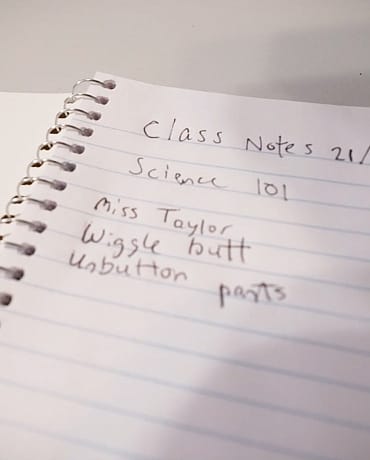 Class Notes 21/
Science 101
Miss Taylor
Wiggle butt
Unbutton pants